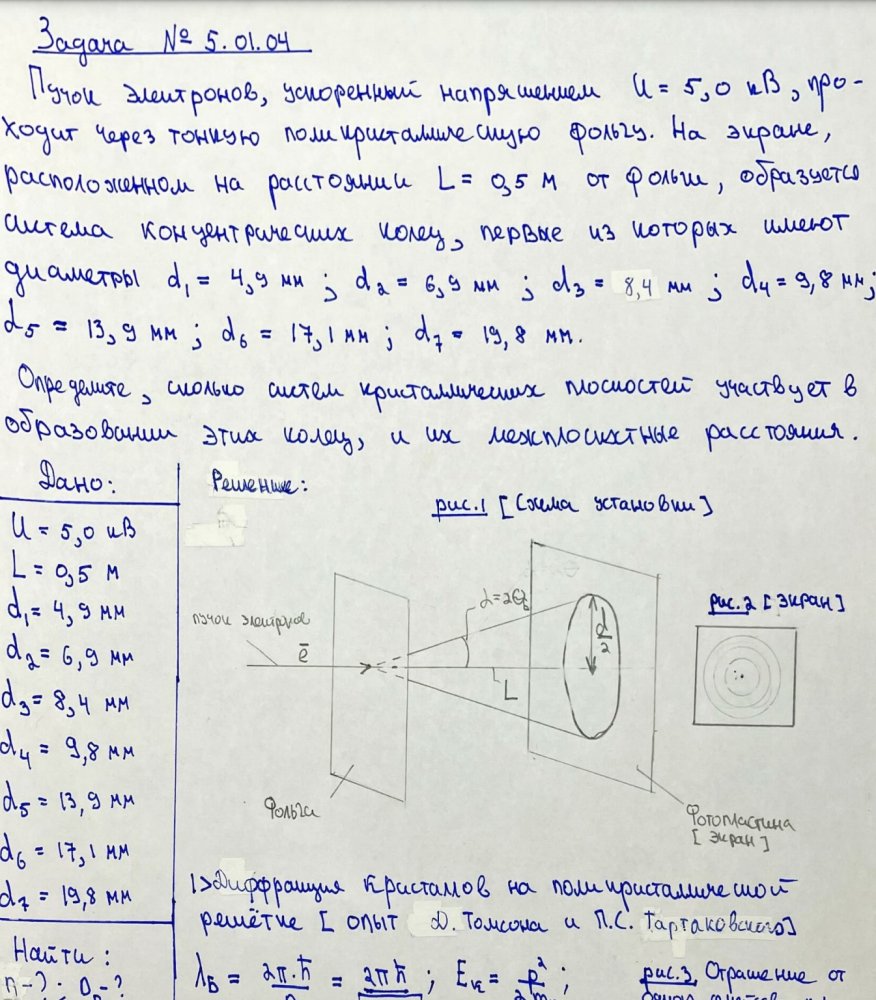 Задача № 5.01.04
Пучок электронов, ускоренный напряжением U = 5,0 кВ, про-
ходит через тонкую поликристаллическую фольгу. На экране,
расположенном на расстоянии L = 0,5 м от фольги, образуется
система концентрических колец, первые из которых имеют
диаметры d₁ = 4,9 мм ; d₂ = 6,9 мм ; d₃ = 8,4 мм ; d₄ = 9,8 мм;
d₅ = 13,9 мм ; d₆ = 17,1 мм ; d₇ = 19,8 мм.
Определите, сколько систем кристаллических плоскостей участвует в
образовании этих колец, и их межплоскостные расстояния.
Дано:
U = 5,0 кВ
L = 0,5 м
d₁ = 4,9 мм
d₂ = 6,9 мм
d₃ = 8,4 мм
d₄ = 9,8 мм
d₅ = 13,9 мм
d₆ = 17,1 мм
d₇ = 19,8 мм
Найти:
n - ? ; D - ?
Решение:
рис.1 [Схема установки]
пучок электронов
e̅
α = 2θ
d/2
L
Фольга
Фотопластина
[экран]
рис.2 [экран]
1> Диффракция кристаллов на поликристаллической
решётке [опыт Д. Томсона и П.С. Тартаковского]
λ_Б = 2π·ħ = 2πħ ; E_к = p² ;
рис.3 Отражение от